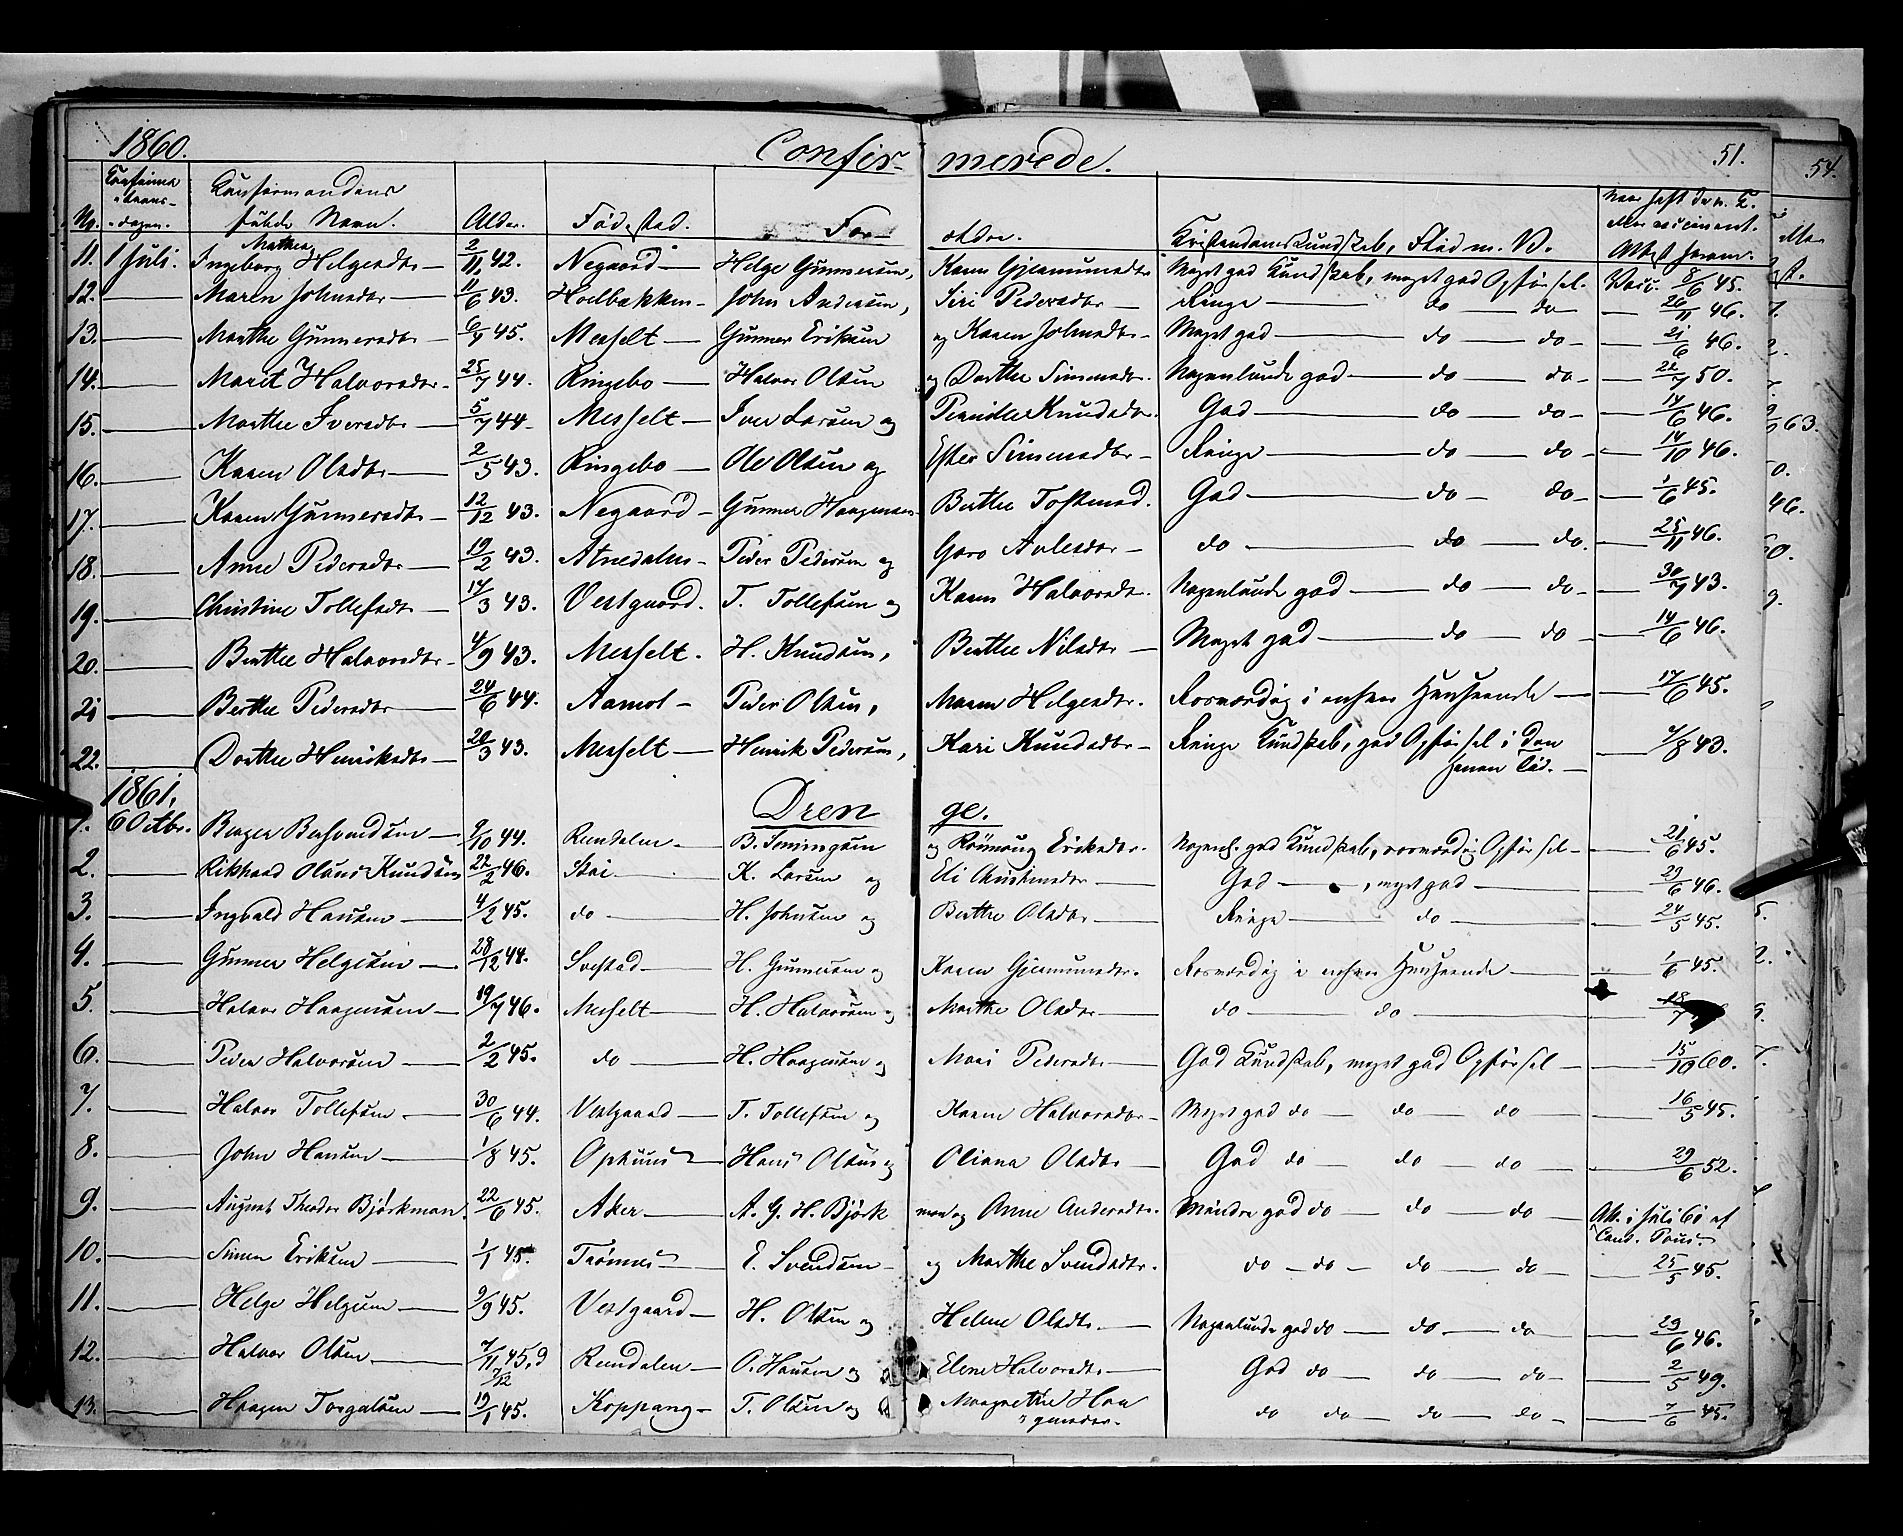 1860. Confir- merede. 51. 54.
No. Confirma- tions- dagen. Confirmandens fulde Navn. Alder. Fødested. For- ældre. Kristendomskundskab, Flid m. V.
11. 1 Juli. Ingeborg Mathea Helgesdtr — 2/11 42. Negaard — Helge Gunnersøn, Karen Gjermunsdtr Meget god Kundskab, meget god Opførsel. Vacc. 8/6 45.
12. — Maren Johnsdtr — 11/6 43. Hoelbakken — John Andersøn, Siri Pedersdtr — Ringe — do — do — 26/11 46.
13. — Marthe Gunnersdtr — 6/4 45. Messelt — Gunner Eriksøn og Karen Johnsdtr — Meget god — do — do — 21/6 46.
14. — Marit Halvorsdtr — 25/7 44. Ringebo — Halvor Olsøn og Dorthe Simensdtr. Nogenlunde god — do — do — 22/7 50.
15. — Marthe Iversdtr — 5/7 44 — Messelt — Iver Larsøn og Pernille Knudsdtr. God — do — do — 14/6 46.
16. — Karen Olsdtr — 2/5 43. Ringebo — Ole Olsøn og Ester Simensdtr — Ringe — do — do — 14/10 46.
17. — Karen Gunnersdtr — 12/12 43. Negaard — Gunner Haagensøn Berthe Tostensd. God — do — do — 1/6 45.
18. — Anne Pedersdtr — 19/2 43. Atnedalen — Peder Pedersøn og Goro — do — do — do. — 25/11 46.
19. — Christine Tollefsdtr — 17/3 43. Vestgaard. T. Tollefsøn og Karen Halvorsdtr. Nogenlunde god — do — do — 30/7 43.
20. — Berthe Halvorsdtr — 4/9 43. Messelt. H. Knudsøn, Berthe Nilsdtr — Meget god — do — do — 14/6 46.
21 — Berthe Pedersdtr — 24/6 44. Aamot — Peder Olsøn, Maren Helgesdtr. Rosværdig i enhver Henseende — 17/6 45.
22. — Dorthe Henriksdtr — 20/3 43. Messelt — Henrik Pedersøn, Kari Knudsdtr — Ringe Kundskab, god Opførsel i den senere Tid. — 7/8 43.
1861. Dren ge.
1. 6 Octbr. Berger — 9/10 44. Rendalen — B. og Rønnoug Eriksdtr. Nogenl. god Kundskab, rosværdig Opførsel — 21/6 45.
2. — Rikhard Olaus Knudsøn 22/2 46. Stai — K. Larsøn og Eli — God — , meget god — 29/6 46.
3. — Ingvald Hansøn — 4/2 45. do — H. Johnsøn og Berthe Olsdtr — Ringe — do — 24/5 45.
4. — Gunner Helgesøn — 28/12 44. — H. Gunnersøn og Karen Gjermunsdtr. Rosværdig i enhver Henseende — 1/6 45.
5. — Halvor Haagensøn — 19/7 46. Messelt — H. Halvorsøn og Marthe Olsdtr — do — do — 18/7
6. — Peder Halvorsøn — 2/2 45. do — H. Haagensøn og Mari Pedersdtr — God Kundskab, meget god Opførsel — 15/10 60.
7. — Halvor Tollefsøn — 30/6 44. Vestgaard — T. Tollefsøn og Karen Halvorsdtr — Meget god do — do — do — 16/5 45.
8. — John Hansøn — 1/8 45. Ophuus — Hans Olsøn og Oliana Olsdtr — God do — do — do — 29/6 52.
9. — August Theodor Bjørkman. 22/6 45. Aker — A. G. H. Bjørk man og Anne Andersdtr. Mindre god do — do — do — Att. i Juli 61 af Cand.
10. — Simen Eriksøn — 1/1 45. Trønnes — E. Svendsøn — og Marthe Svendsdtr. do — do — do — do — 25/5 45.
11. — Helge Helgesøn — 9/9 45. Vestgaard — H. Olsøn og Helene Olsdtr. — Nogenlunde god do — do — do — 29/6 46.
12. — Halvor Olsøn — 7/11 45, d 7/12 Rendalen — O. Hansøn og Elene Halvorsdtr — God do — do — do — 2/5 49.
13. — Haagen Torgalsøn — 19/1 45. Koppang — T. Olsøn og Margrethe Haa gensdtr. do do — do — do — 7/6 45.